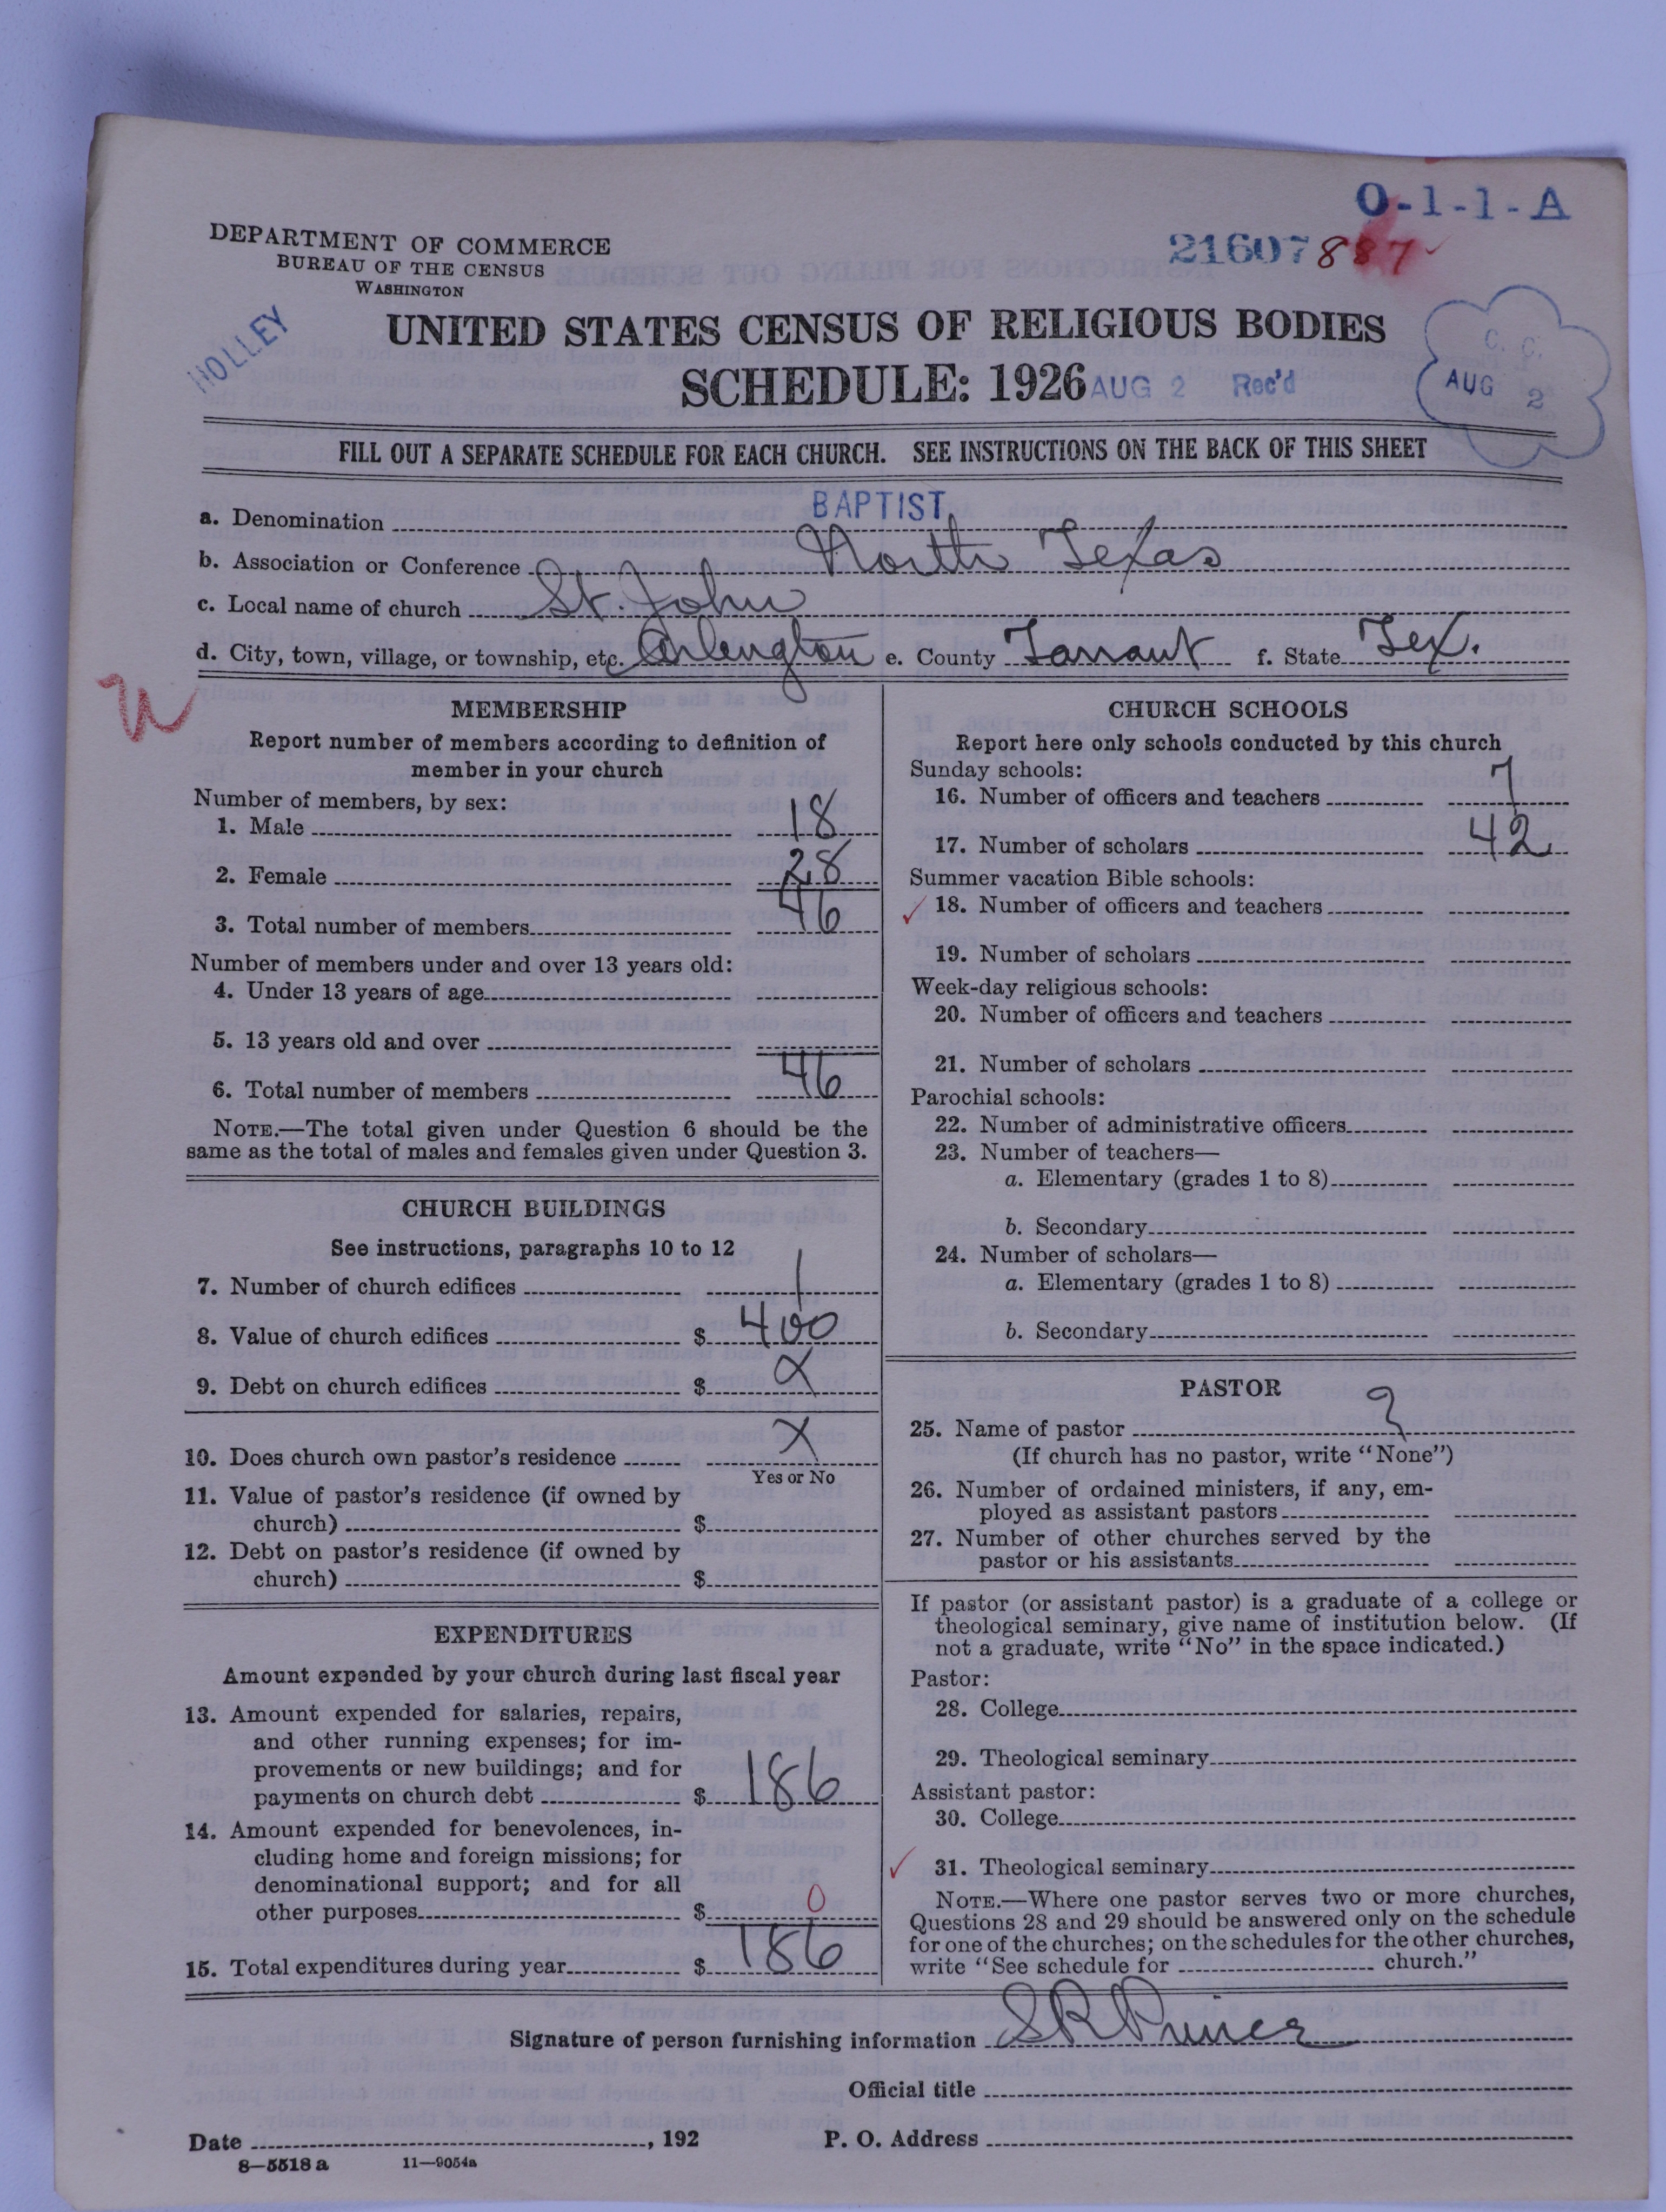 O-1-1-A
DEPARTMENT OF COMMERCE
BUREAU OF THE CENSUS
WASHINGTON
21607 887
HOLLEY
UNITED STATES CENSUS OF RELIGIOUS BODIES
SCHEDULE: 1926 AUG 2 Rec'd
C. C.
AUG 2
FILL OUT A SEPARATE SCHEDULE FOR EACH CHURCH. SEE INSTRUCTIONS ON THE BACK OF THIS SHEET
a. Denomination BAPTIST
b. Association or Conference North Texas
c. Local name of church St. John
d. City, town, village, or township, etc. Arlington e. County Tarrant f. State Tex.
MEMBERSHIP
Report number of members according to definition of
member in your church
Number of members, by sex:
1. Male 18
2. Female 28
3. Total number of members 46
Number of members under and over 13 years old:
4. Under 13 years of age
5. 13 years old and over
6. Total number of members 46
NOTE.—The total given under Question 6 should be the
same as the total of males and females given under Question 3.
CHURCH BUILDINGS
See instructions, paragraphs 10 to 12
7. Number of church edifices 1
8. Value of church edifices $ 400
9. Debt on church edifices $ X
10. Does church own pastor's residence X
Yes or No
11. Value of pastor's residence (if owned by
church) $
12. Debt on pastor's residence (if owned by
church) $
EXPENDITURES
Amount expended by your church during last fiscal year
13. Amount expended for salaries, repairs,
and other running expenses; for im-
provements or new buildings; and for
payments on church debt $ 186
14. Amount expended for benevolences, in-
cluding home and foreign missions; for
denominational support; and for all
other purposes $ 0
15. Total expenditures during year $ 186
CHURCH SCHOOLS
Report here only schools conducted by this church
Sunday schools:
16. Number of officers and teachers 7
17. Number of scholars 42
Summer vacation Bible schools:
18. Number of officers and teachers
19. Number of scholars
Week-day religious schools:
20. Number of officers and teachers
21. Number of scholars
Parochial schools:
22. Number of administrative officers
23. Number of teachers—
a. Elementary (grades 1 to 8)
b. Secondary
24. Number of scholars—
a. Elementary (grades 1 to 8)
b. Secondary
PASTOR
25. Name of pastor ?
(If church has no pastor, write "None")
26. Number of ordained ministers, if any, em-
ployed as assistant pastors
27. Number of other churches served by the
pastor or his assistants
If pastor (or assistant pastor) is a graduate of a college or
theological seminary, give name of institution below. (If
not a graduate, write "No" in the space indicated.)
Pastor:
28. College
29. Theological seminary
Assistant pastor:
30. College
31. Theological seminary
NOTE.—Where one pastor serves two or more churches,
Questions 28 and 29 should be answered only on the schedule
for one of the churches; on the schedules for the other churches,
write "See schedule for church."
Signature of person furnishing information S R Prince
Official title
Date , 192 P. O. Address
8—5518 a 11—9054a